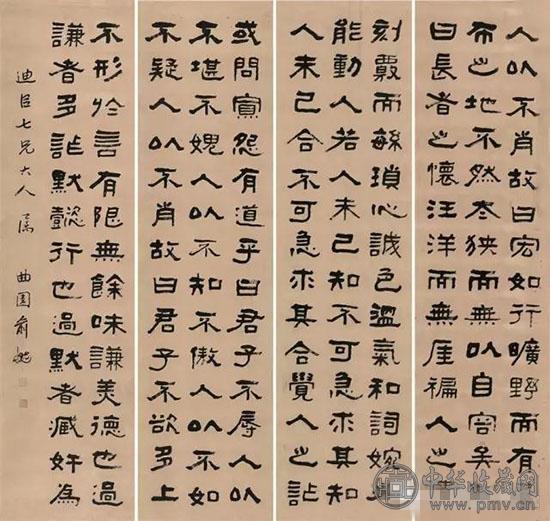 人以不肖故曰宏如行曠野而有
布之地不然太狹而無以自容矣
曰長者之懷汪洋而無厓褊人之
刻覈而緐瑣心誠色溫氣和詞婉
能動人若人未己知不可急求其知
人未己合不可急求其合覺人之詐
或問寡怨有道乎曰君子不辱人以
不堪不媿人以不知不傲人以不如
不疑人以不肖故曰君子不欲多上
不形於言有限無餘味謙美德也過
謙者多詐默懿行也過默者藏奸為
迪臣七兄大人屬 曲園俞樾
中华收藏网
www.pmv.cn